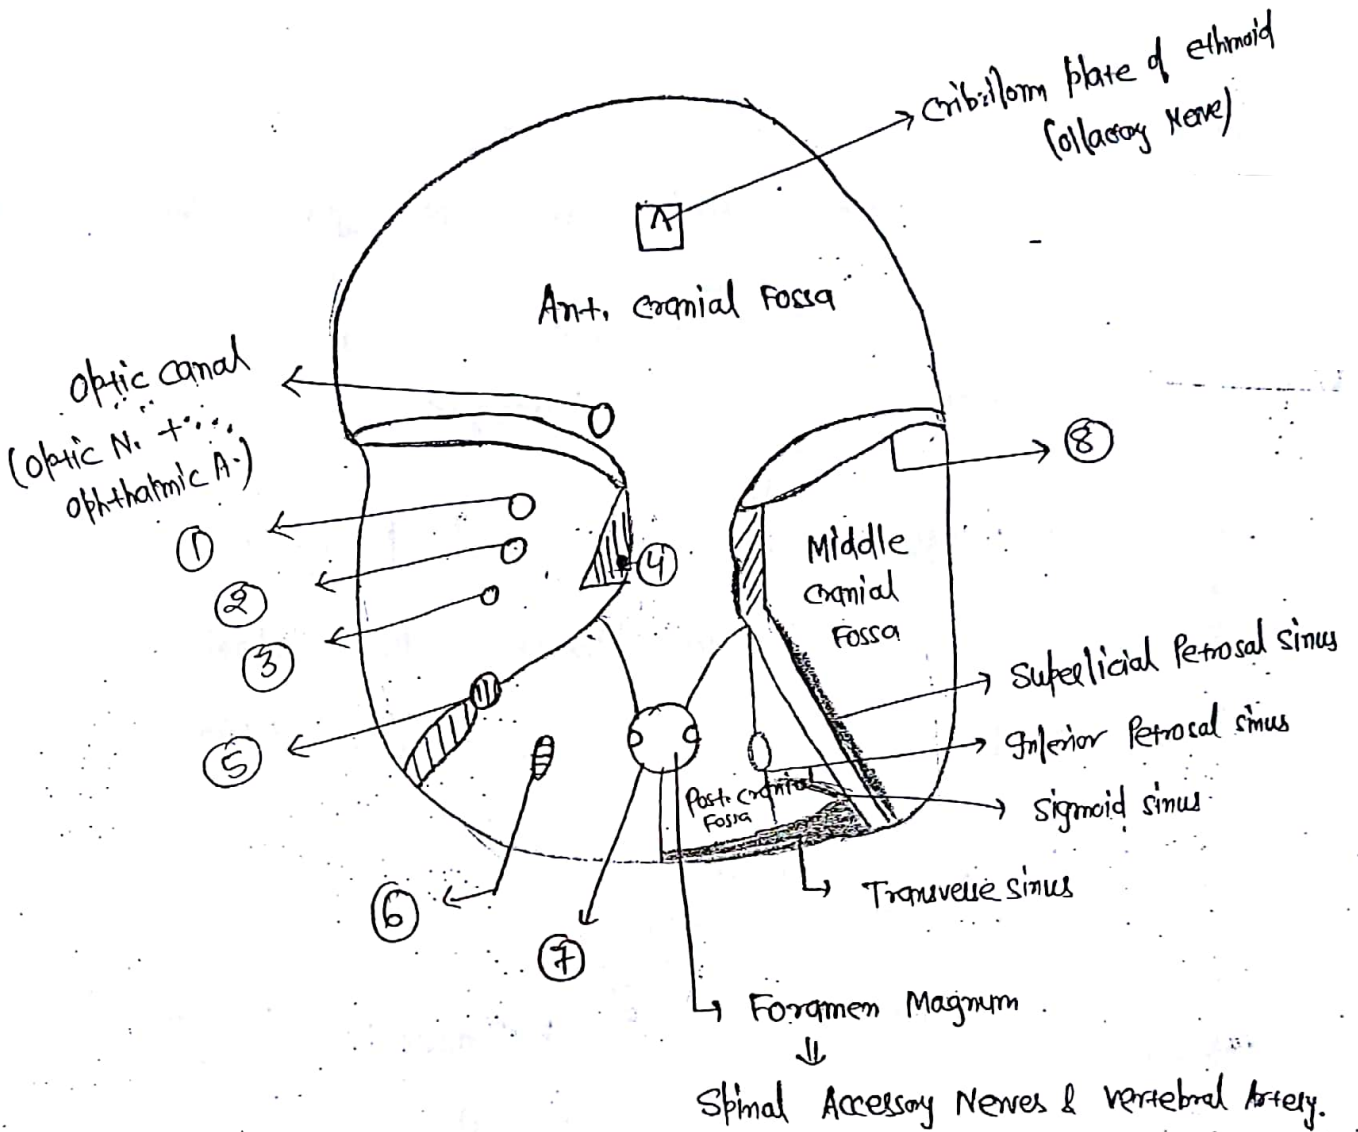 cribriform plate of ethmoid
(olfactory Nerve)
Ant. cranial Fossa
optic canal
(optic N. +
ophthalmic A.)
8
1
2
3
4
Middle
cranial
Fossa
Superficial Petrosal sinus
Inferior Petrosal sinus
Sigmoid sinus
5
Post. cranial
Fossa
Transverse sinus
6
7
Foramen Magnum
⇓
Spinal Accessory Nerves & vertebral Artery.